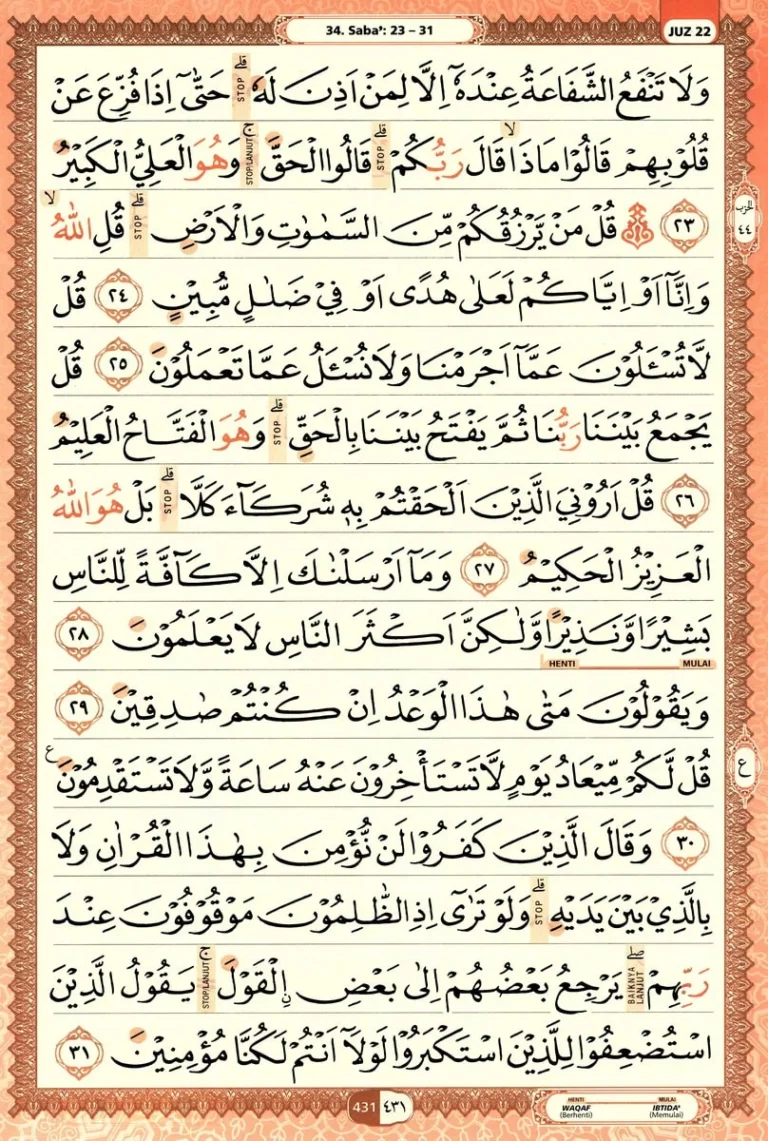 34. Saba': 23 – 31
JUZ 22
وَلَا تَنْفَعُ الشَّفَاعَةُ عِنْدَهٗٓ اِلَّا لِمَنْ اَذِنَ لَهٗ ۗ STOP حَتّٰىٓ اِذَا فُزِّعَ عَنْ
قُلُوْبِهِمْ قَالُوْا مَاذَا ۙ قَالَ رَبُّكُمْ ۗ STOP قَالُوا الْحَقَّ ۚ STOP/LANJUT وَهُوَ الْعَلِيُّ الْكَبِيْرُ
٢٣ ۞ قُلْ مَنْ يَّرْزُقُكُمْ مِّنَ السَّمٰوٰتِ وَالْاَرْضِ ۗ STOP قُلِ اللّٰهُ ۙ
وَاِنَّآ اَوْ اِيَّاكُمْ لَعَلٰى هُدًى اَوْ فِيْ ضَلٰلٍ مُّبِيْنٍ ٢٤ قُلْ
لَّا تُسْـَٔلُوْنَ عَمَّآ اَجْرَمْنَا وَلَا نُسْـَٔلُ عَمَّا تَعْمَلُوْنَ ٢٥ قُلْ
يَجْمَعُ بَيْنَنَا رَبُّنَا ثُمَّ يَفْتَحُ بَيْنَنَا بِالْحَقِّ ۗ STOP وَهُوَ الْفَتَّاحُ الْعَلِيْمُ
٢٦ قُلْ اَرُوْنِيَ الَّذِيْنَ اَلْحَقْتُمْ بِهٖ شُرَكَاۤءَ كَلَّا ۗ STOP بَلْ هُوَ اللّٰهُ
الْعَزِيْزُ الْحَكِيْمُ ٢٧ وَمَآ اَرْسَلْنٰكَ اِلَّا كَاۤفَّةً لِّلنَّاسِ
بَشِيْرًا وَّنَذِيْرًا وَّلٰكِنَّ اَكْثَرَ النَّاسِ لَا يَعْلَمُوْنَ ٢٨
MULAI HENTI
وَيَقُوْلُوْنَ مَتٰى هٰذَا الْوَعْدُ اِنْ كُنْتُمْ صٰدِقِيْنَ ٢٩
قُلْ لَّكُمْ مِّيْعَادُ يَوْمٍ لَّا تَسْتَأْخِرُوْنَ عَنْهُ سَاعَةً وَّلَا تَسْتَقْدِمُوْنَ ࣖ
٣٠ وَقَالَ الَّذِيْنَ كَفَرُوْا لَنْ نُّؤْمِنَ بِهٰذَا الْقُرْاٰنِ وَلَا
بِالَّذِيْ بَيْنَ يَدَيْهِ ۗ STOP وَلَوْ تَرٰىٓ اِذِ الظّٰلِمُوْنَ مَوْقُوْفُوْنَ عِنْدَ
رَبِّهِمْ ۖ BAIKNYA LANJUT يَرْجِعُ بَعْضُهُمْ اِلٰى بَعْضِ ِۨالْقَوْلَ ۚ STOP/LANJUT يَقُوْلُ الَّذِيْنَ
اسْتُضْعِفُوْا لِلَّذِيْنَ اسْتَكْبَرُوْا لَوْلَآ اَنْتُمْ لَكُنَّا مُؤْمِنِيْنَ ٣١
الحزب
٤٤
ع
431 ٤٣١
HENTI MULAI
WAQAF IBTIDA'
(Berhenti) (Memulai)